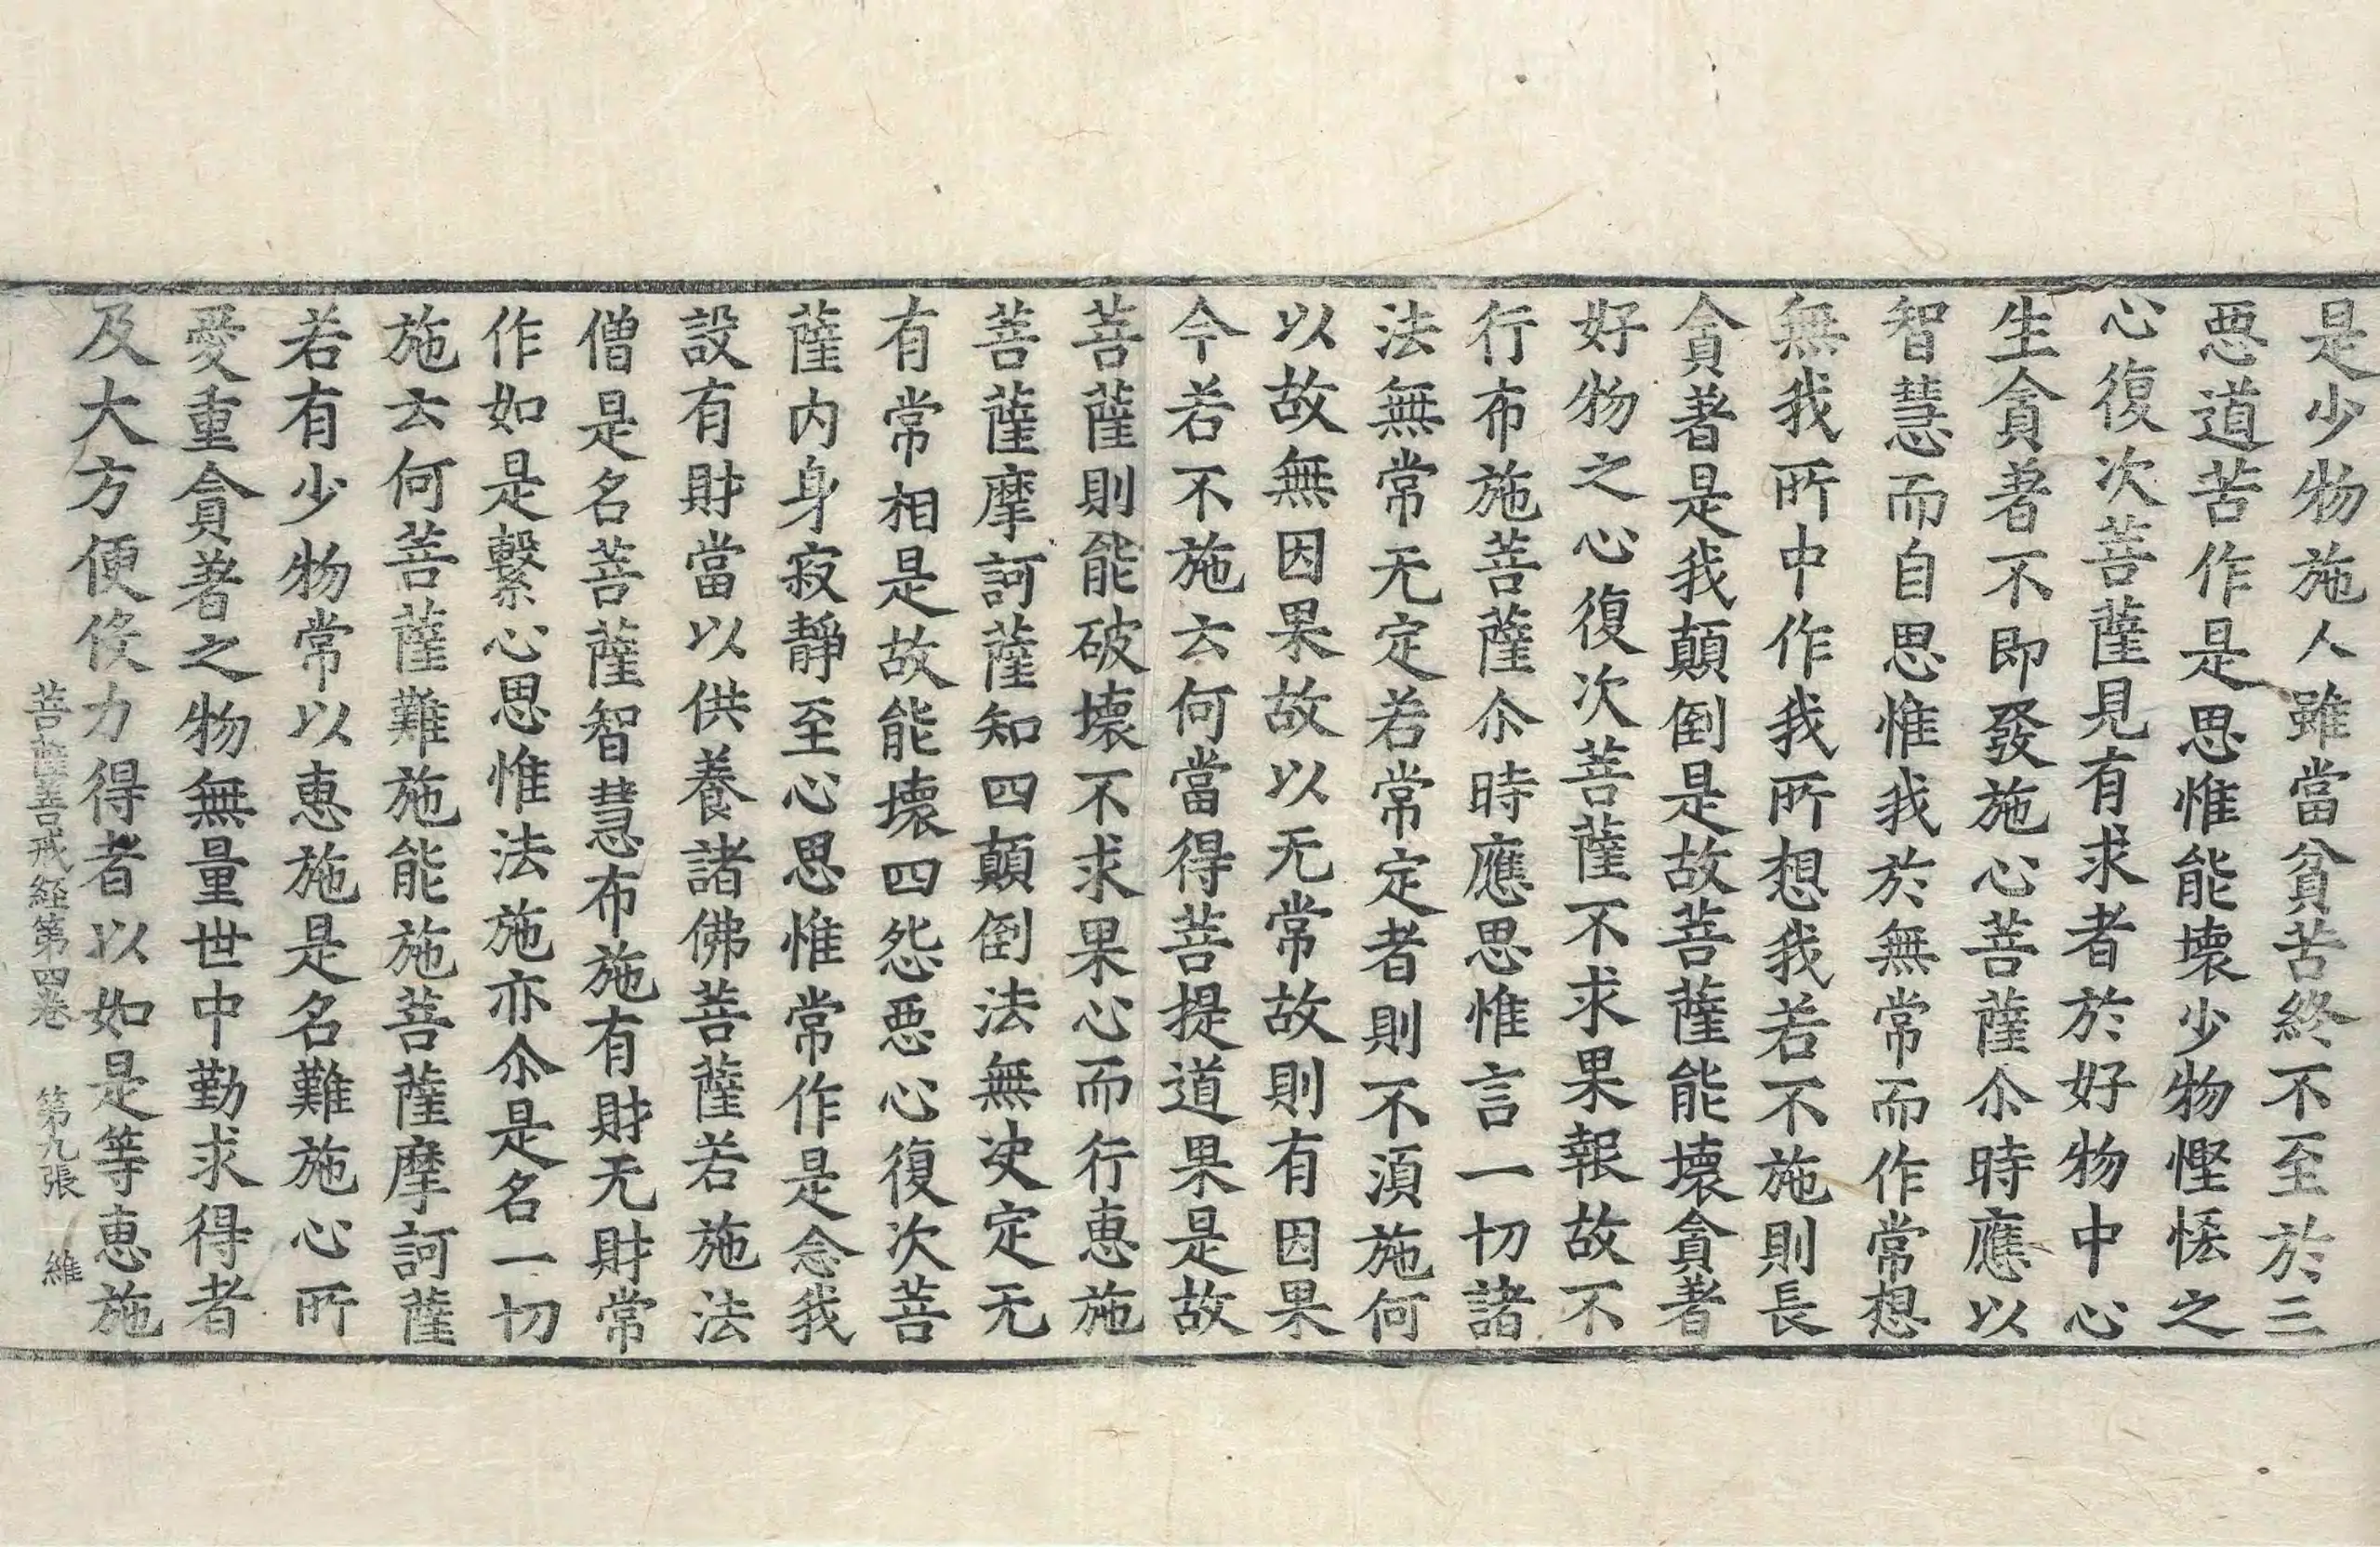 是少物施人雖當貧苦終不至於三
惡道苦作是思惟能壞少物慳悋之
心復次菩薩見有求者於好物中心
生貪著不即發施心菩薩尒時應以
智慧而自思惟我於無常而作常想
無我所中作我所想我若不施則長
貪著是我顛倒是故菩薩能壞貪著
好物之心復次菩薩不求果報故不
行布施菩薩尒時應思惟言一切諸
法無常无定若常定者則不湏施何
以故無因果故以无常故則有因果
今若不施云何當得菩提道果是故
菩薩則能破壞不求果心而行惠施
菩薩摩訶薩知四顛倒法無决定无
有常相是故能壞四怨惡心復次菩
薩内身寂靜至心思惟常作是念我
設有財當以供養諸佛菩薩若施法
僧是名菩薩智慧布施有財无財常
作如是繫心思惟法施亦尒是名一切
施云何菩薩難施能施菩薩摩訶薩
若有少物常以惠施是名難施心所
愛重貪著之物無量世中勤求得者
及大方便㑛力得者以如是等惠施
菩薩善戒経第四卷 第九張 維